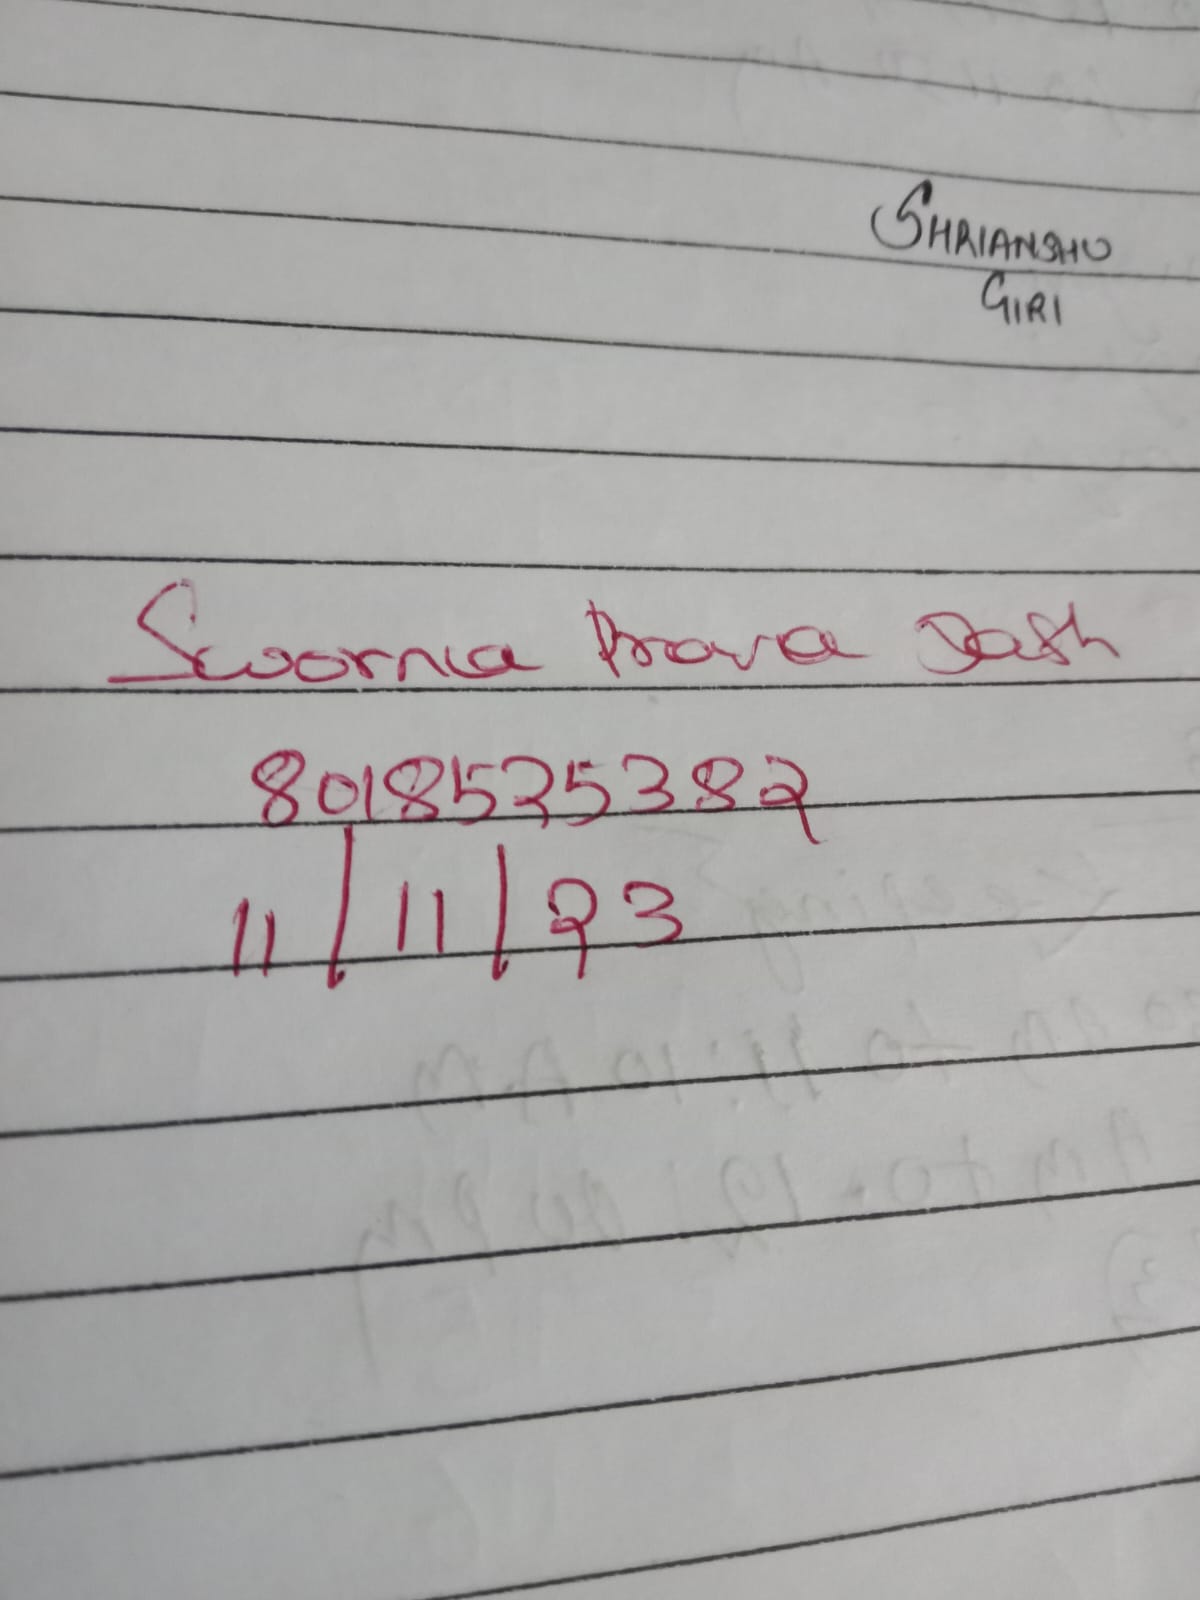 SHRIANSHU
GIRI
Swornia Prova Dash
8018525382
11/11/23